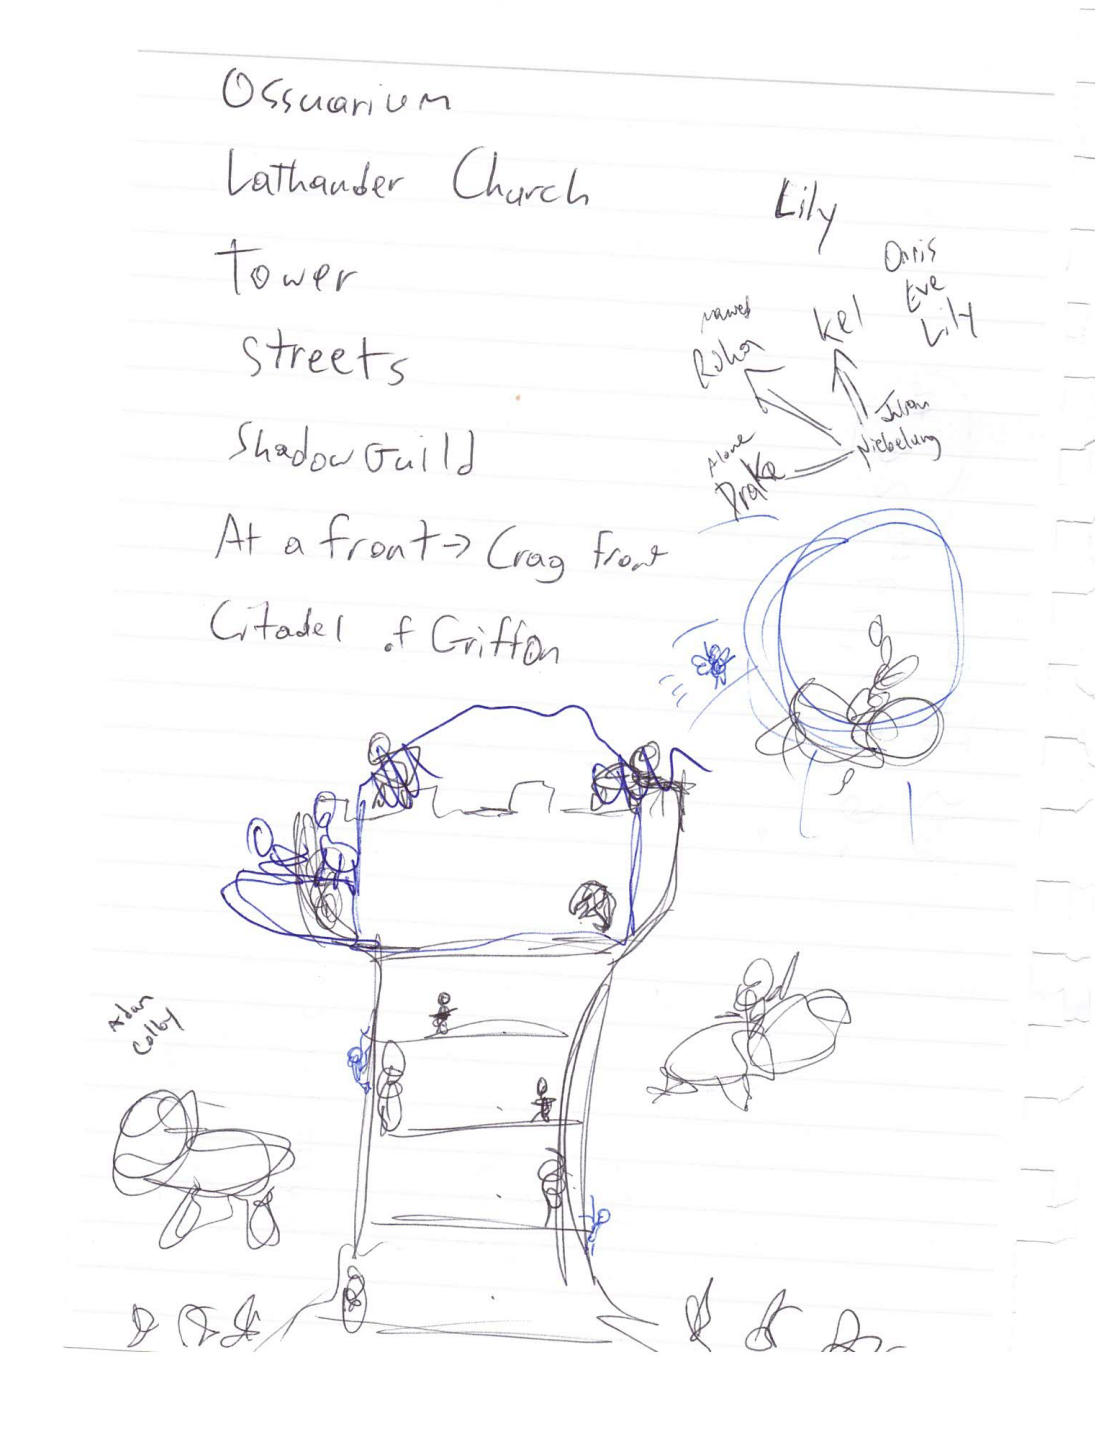 Ossuarium
Lathander Church
Tower
Streets
Shadow Guild
At a front → Crag front
Citadel of Griffon
Lily
Eve
Lily
Kel
Niebelung
Alone
Drake
Adam
Colby